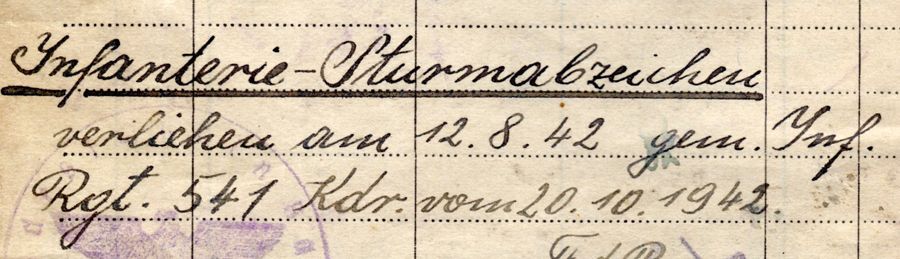 Infanterie-Sturmabzeichen
verliehen am 12.8.42 gem. Inf.
Rgt. 541 Kdr. vom 20.10.1942.